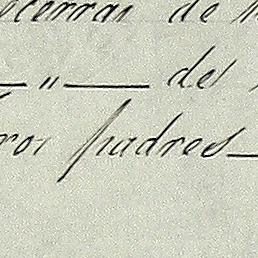 ecerras de
— „ — del
ros padres —